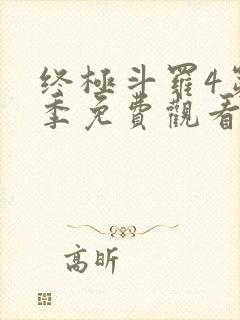 终極斗羅4第
季免費觀看
高昕